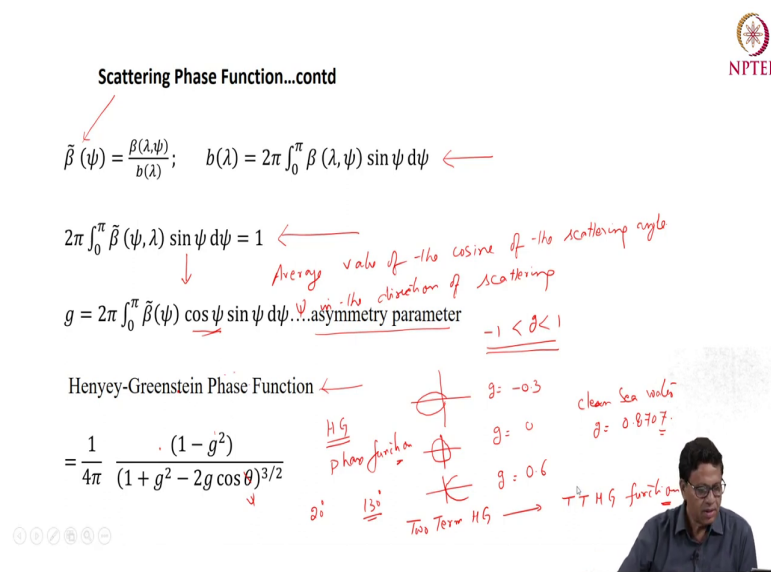 NPTEL
Scattering Phase Function…contd
β̃ (ψ) = β(λ,ψ) / b(λ) ; b(λ) = 2π ∫₀^π β (λ, ψ) sin ψ dψ
2π ∫₀^π β̃ (ψ, λ) sin ψ dψ = 1
Average value of the cosine of the scattering angle
ψ in the direction of scattering
g = 2π ∫₀^π β̃(ψ) cos ψ sin ψ dψ….asymmetry parameter
-1 < g < 1
Henyey-Greenstein Phase Function
= 1/4π (1 − g²) / (1 + g² − 2g cos θ)^3/2
HG
Phase function
g = -0.3
g = 0
g = 0.6
clean sea water
g = 0.8707
20° 130°
Two Term HG → TTHG function